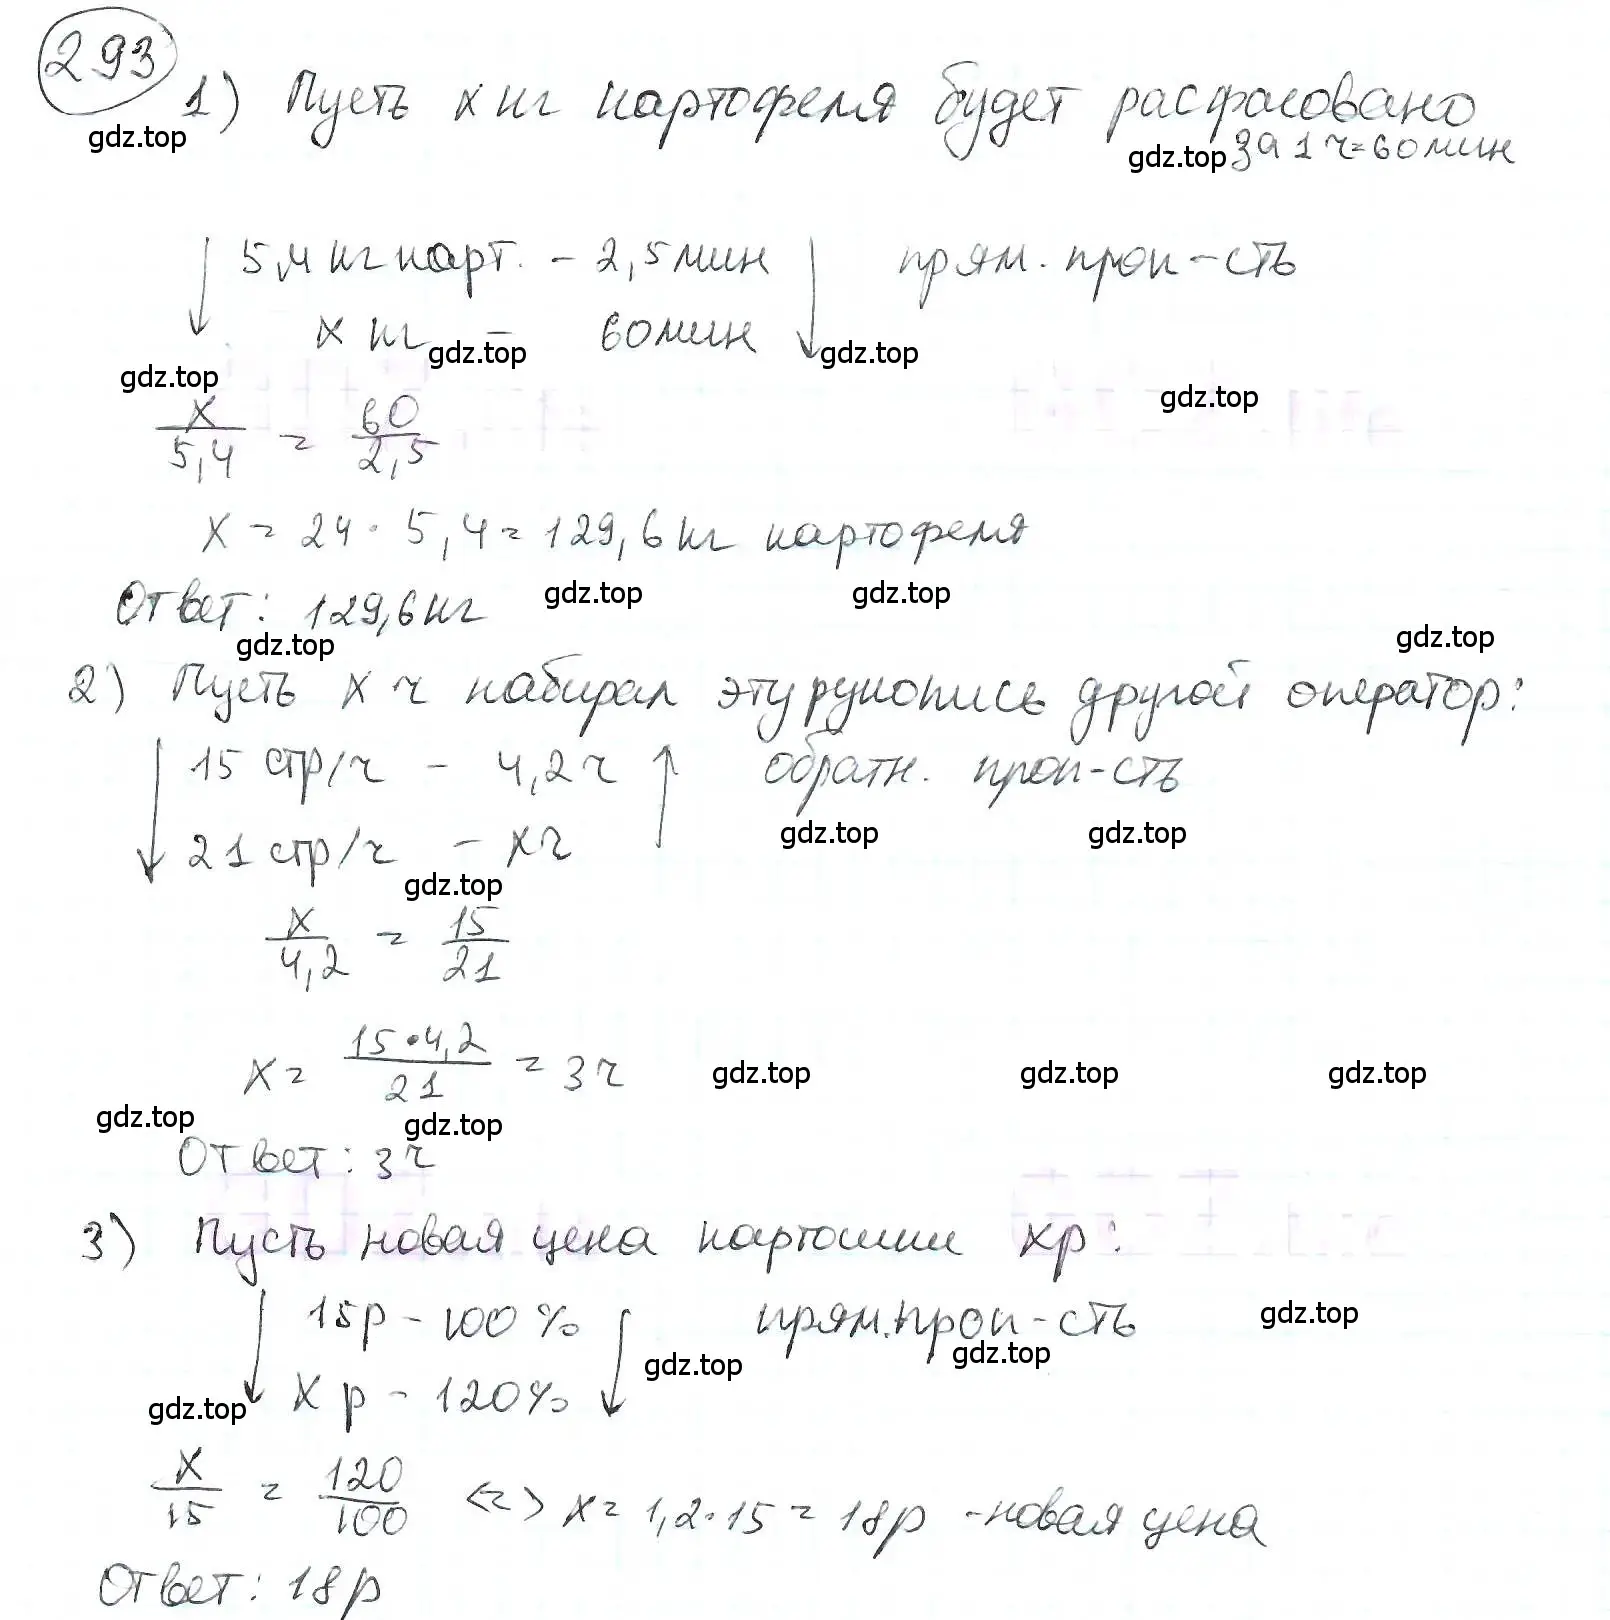 293
1) Пусть x кг картофеля будет расфасовано
gdz.top
gdz.top за 1 ч = 60 мин
5,4 кг карт. – 2,5 мин прям. проп-сть
x кг – 60 мин
gdz.top gdz.top
gdz.top gdz.top
x/5,4 = 60/2,5
x = 24 · 5,4 = 129,6 кг картофеля
gdz.top gdz.top
Ответ: 129,6 кг
gdz.top gdz.top
2) Пусть x ч набирал эту рукопись другой оператор:
↓ 15 стр/ч – 4,2 ч ↑ обратн. проп-сть
21 стр/ч – x ч gdz.top gdz.top
gdz.top
x/4,2 = 15/21
x = 15·4,2/21 = 3 ч gdz.top gdz.top gdz.top
gdz.top gdz.top
Ответ: 3 ч
3) Пусть новая цена картошки x р:
↓ 15 р – 100% ↓ прям. проп-сть gdz.top
gdz.top gdz.top
x р – 120%
gdz.top
x/15 = 120/100 <=> x = 1,2·15 = 18 р - новая цена
Ответ: 18 р